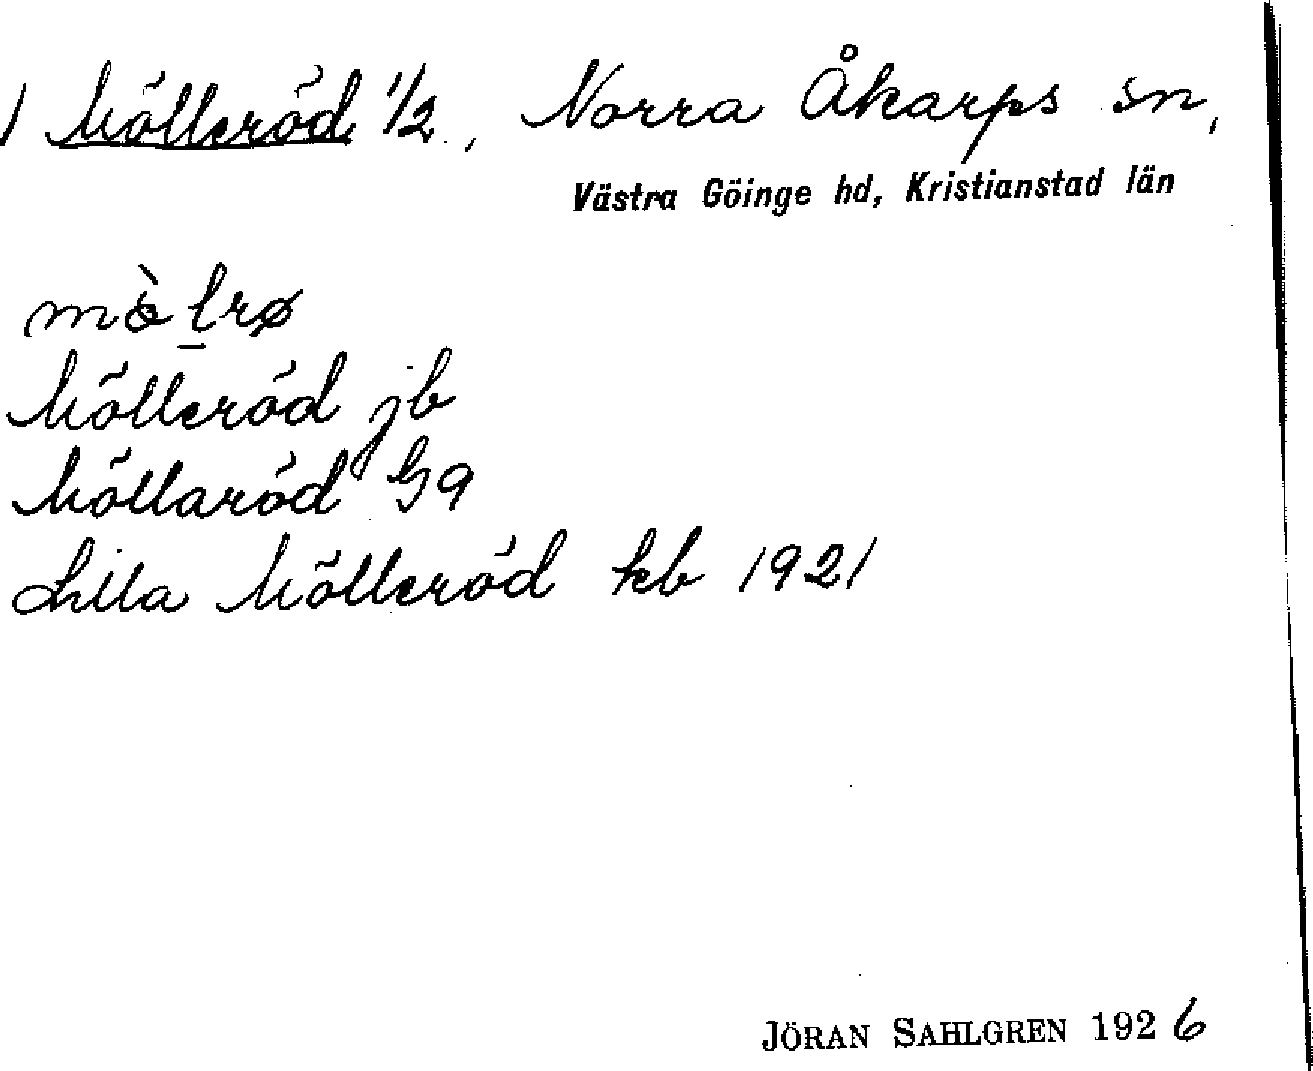 ) Mölleröd 1/2., Norra Åkarps sn,
Västra Göinge hd, Kristianstad län
Mölleröd jb
Möllaröd
Lilla Mölleröd kb 1921
JÖRAN SAHLGREN 1926